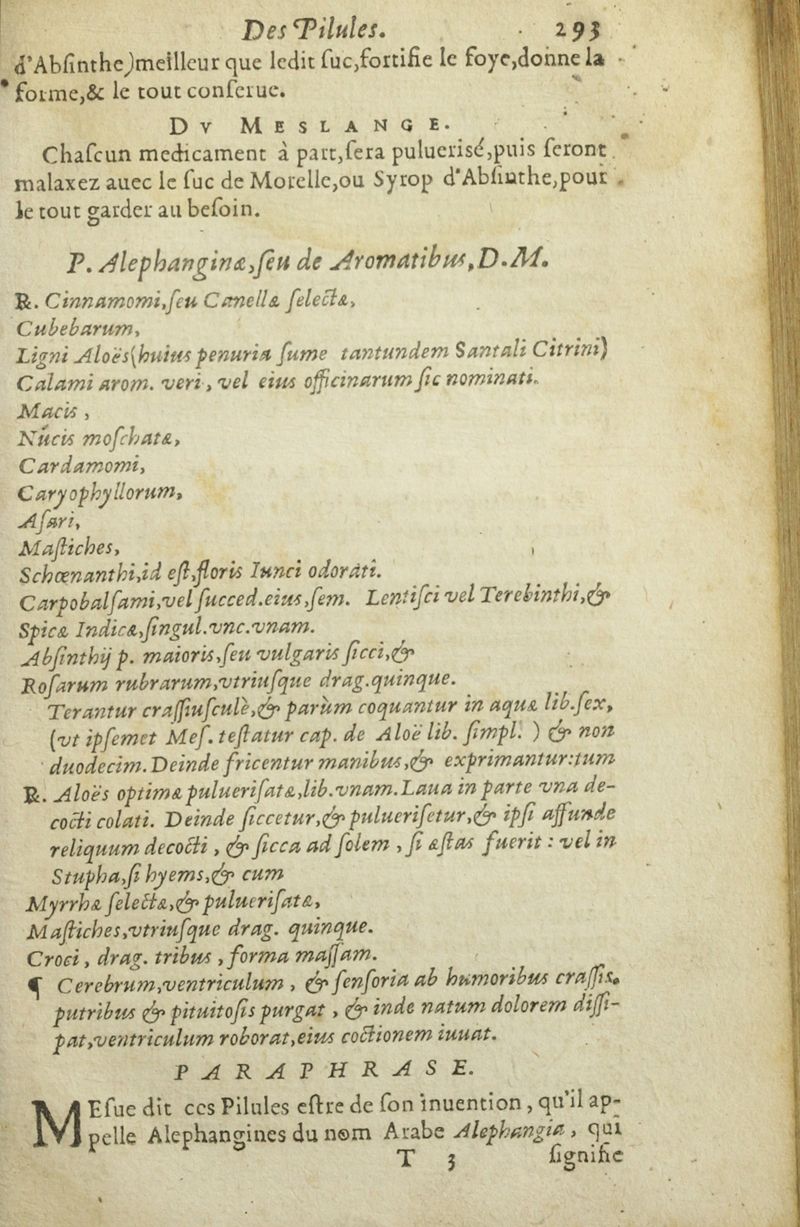 Des Pilules. 293
d'Abſinthe)meilleur que ledit ſuc,fortifie le foye,donne la
forme,& le tout conſerue.
DV MESLANGE.
Chaſcun medicament à part,ſera puluerisé,puis ſeront
malaxez auec le ſuc de Morelle,ou Syrop d'Abſinthe,pour
le tout garder au beſoin.
P. Alephanginæ,ſeu de Aromatibus,D.M.
℞. Cinnamomi,ſeu Canellæ ſelectæ,
Cubebarum,
Ligni Aloës(huius penuria ſume tantundem Santali Citrini)
Calami arom. veri, vel eius officinarum ſic nominati.
Macis,
Nucis moſchatæ,
Cardamomi,
Caryophyllorum,
Aſari,
Maſtiches,
Schœnanthi,id eſt,floris Iunci odorati.
Carpobalſami,vel ſucced.eius,ſem. Lentiſci vel Terebinthi,&
Spicæ Indicæ,ſingul.vnc.vnam.
Abſinthij p. maioris,ſeu vulgaris ſicci,&
Roſarum rubrarum,vtriuſque drag.quinque.
Terantur craſſiuſculè,& parùm coquantur in aquæ lib.ſex,
(vt ipſemet Meſ. teſtatur cap. de Aloë lib. ſimpl. ) & non
duodecim.Deinde fricentur manibus,& exprimantur:tum
℞. Aloës optimæ pulueriſatæ,lib.vnam.Laua in parte vna de-
cocti colati. Deinde ſiccetur,& pulueriſetur,& ipſi affunde
reliquum decocti, & ſicca ad ſolem, ſi æſtas fuerit : vel in
Stupha,ſi hyems,& cum
Myrrhæ ſelectæ,& pulueriſatæ,
Maſtiches,vtriuſque drag. quinque.
Croci, drag. tribus, forma maſſam.
¶ Cerebrum,ventriculum, & ſenſoria ab humoribus craſſis,
putribus & pituitoſis purgat, & inde natum dolorem diſſi-
pat,ventriculum roborat,eius coctionem iuuat.
PARAPHRASE.
MEſue dit ces Pilules eſtre de ſon inuention, qu'il ap-
pelle Alephangines du nom Arabe Alephangia, qui
T 3 ſignifie